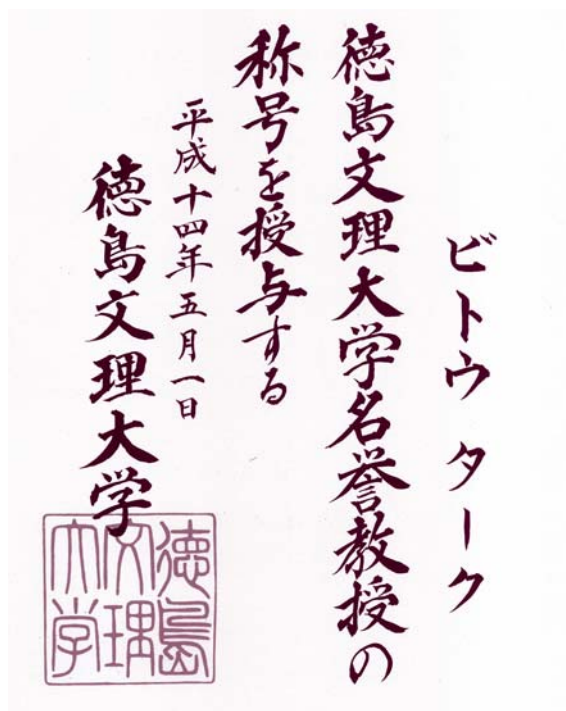 ビトウ ターク
徳島文理大学名誉教授の
称号を授与する
平成十四年五月一日
徳島文理大学
徳島
文理
大学